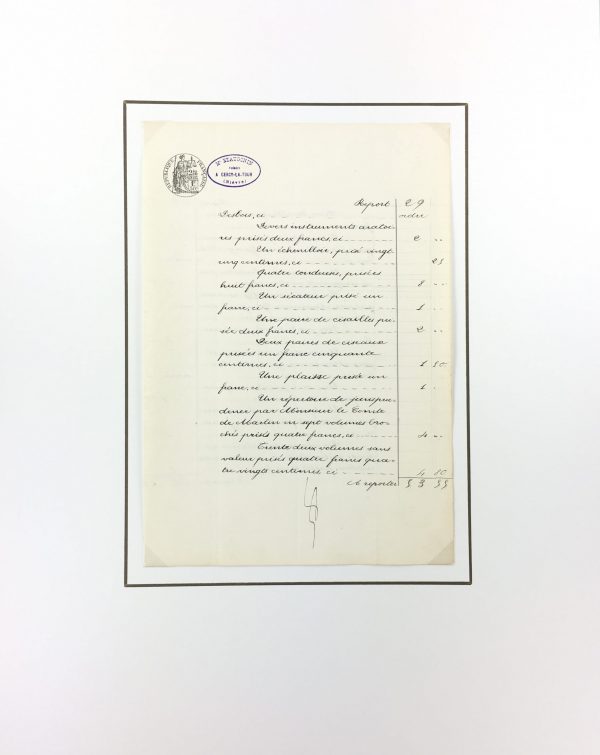 REPUBLIQUE FRANCAISE
Me BEAUDOUIN
NOTAIRE
A CERCY-LA-TOUR
(Nièvre)
Report 29
Desbois, ci ordre
Divers instruments aratoi-
res prisés deux francs, ci 2 "
Un échenilloir, prisé vingt
cinq centimes, ci 25
Quatre prisées
huit francs, ci 8 "
Un sécateur prisé un
franc, ci 1 "
Une paire de cisailles pri-
sée deux francs, ci 2 "
Deux paires de ciseaux
prisées un franc cinquante
centimes, ci 1 50
Une prisée un
franc, ci 1 "
Un répertoire de jurispru-
dence par Monsieur le Comte
de en sept volumes bro-
chés prisés quatre francs, ci 4 "
Trente deux volumes sans
valeur prisés quatre francs qua-
tre vingts centimes, ci 4 80
A reporter 53 55